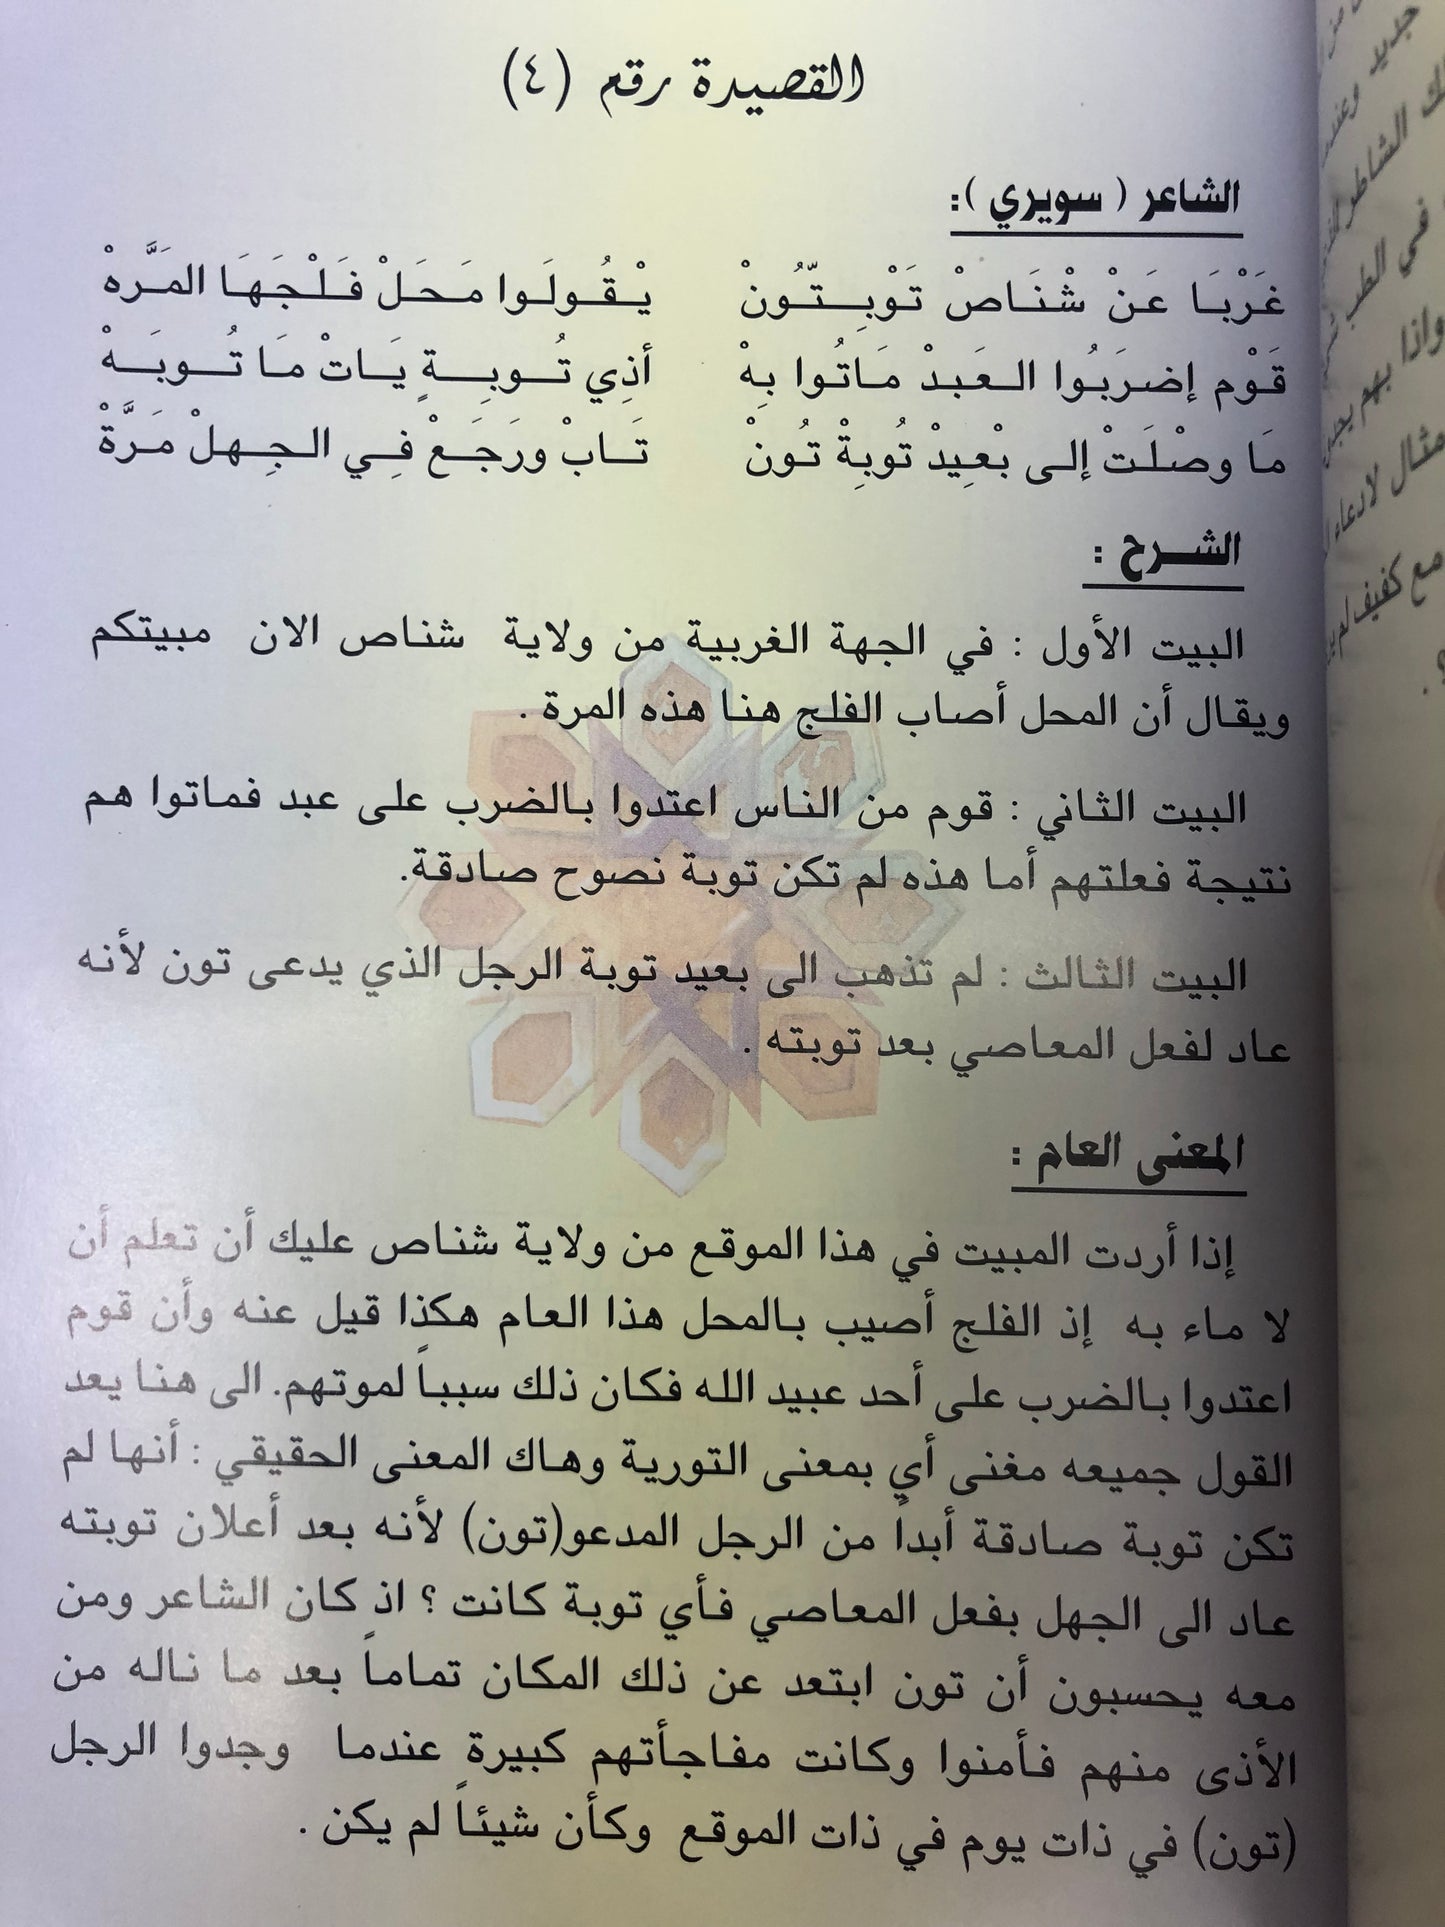 القصيدة رقم (٤)
الشاعر ( سويري ):
غَرْبَا عَنْ شْنَاصْ تَوْبِتّوُنْ يْقُولَوا مَحَلْ فَلْجَهَا المَرَّهْ
قَوْم إضرَبُوا العَبدْ مَاتُوا بِهْ أذِي تُوبِةٍ يَاتْ مَا تُوبَهْ
مَا وصْلَتْ إلى بْعِيدْ تُوبِةْ تُونْ تَابْ ورَجَعْ فِي الجِهلْ مَرَّةْ
الشرح :
البيت الأول : في الجهة الغربية من ولاية شناص الان مبيتكم
ويقال أن المحل أصاب الفلج هنا هذه المرة .
البيت الثاني : قوم من الناس اعتدوا بالضرب على عبد فماتوا هم
نتيجة فعلتهم أما هذه لم تكن توبة نصوح صادقة.
البيت الثالث : لم تذهب الى بعيد توبة الرجل الذي يدعى تون لأنه
عاد لفعل المعاصي بعد توبته .
المعنى العام :
إذا أردت المبيت في هذا الموقع من ولاية شناص عليك أن تعلم أن
لا ماء به إذ الفلج أصيب بالمحل هذا العام هكذا قيل عنه وأن قوم
اعتدوا بالضرب على أحد عبيد الله فكان ذلك سبباً لموتهم. الى هنا يعد
القول جميعه مغنى أي بمعنى التورية وهاك المعنى الحقيقي : أنها لم
تكن توبة صادقة أبداً من الرجل المدعو(تون) لأنه بعد أعلان توبته
عاد الى الجهل بفعل المعاصي فأي توبة كانت ؟ اذ كان الشاعر ومن
معه يحسبون أن تون ابتعد عن ذلك المكان تماماً بعد ما ناله من
الأذى منهم فأمنوا وكانت مفاجأتهم كبيرة عندما وجدوا الرجل
(تون) في ذات يوم في ذات الموقع وكأن شيئاً لم يكن .
جديد وعند
الشاطر
في الطب
واذا بهم
مثال لادعاء
مع كفيف لم